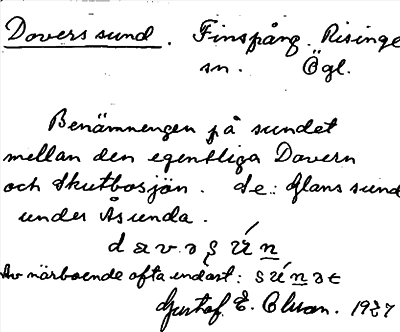 Dovers sund. Finspång. Risinge
sn. Ögl.
Benämnengen på sundet
mellan den egentliga Dovern
och Skutbosjön. de: Glans sund
under Åsunda.
Av närboende ofta endast:
Gustaf E. 1927